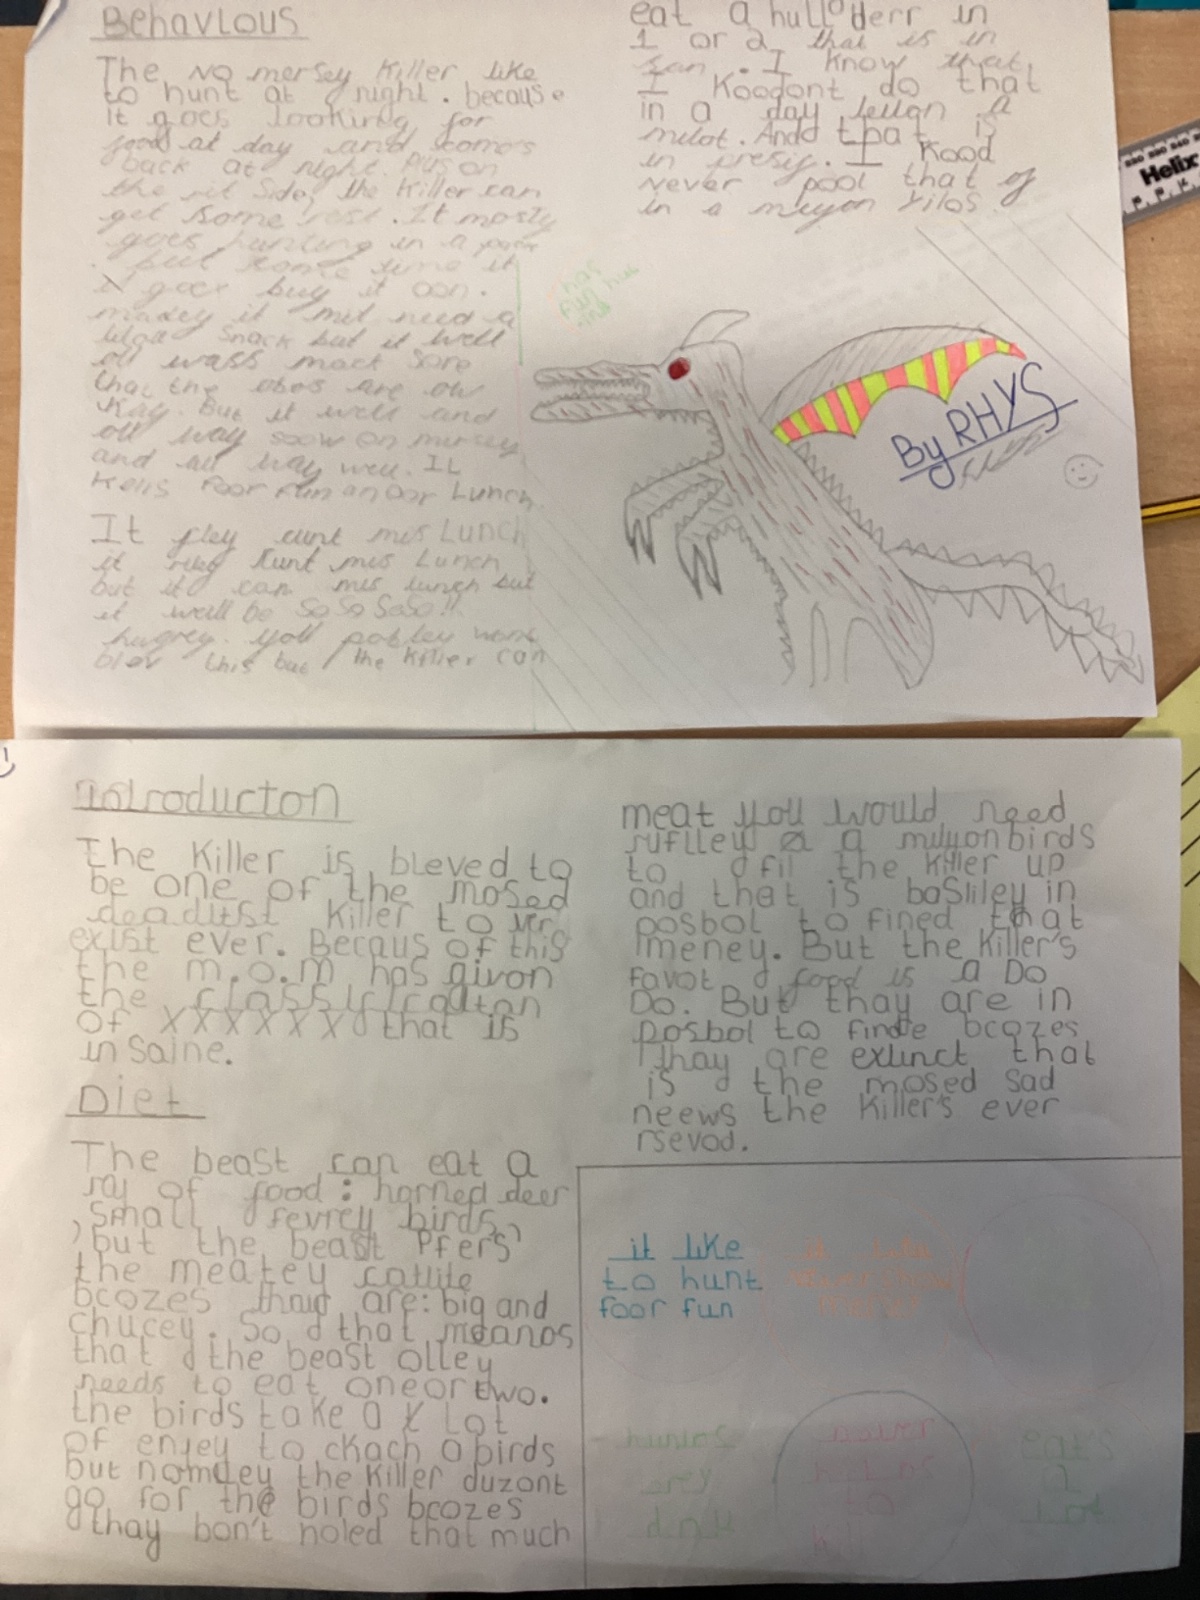 Behavious
The No mersey Killer like
to hunt at night. because
it goes looking for
food at day and comers
back at night. Plus on
the sit side, the killer can
get some rest. It mosty
goes hunting in a pack
but some time it
goes buy it oon.
madey it mit need a
snack but it well
all wass mack sore
that the are ow
kay. But it well and
all way soow on mersey
and all way well. It
kells foor fun an oor Lunch
It fley cunt mis Lunch
it cunt mis Lunch
but it can mis lunch but
it well be So So SoSo!!
hugrey. yoll pobley wont
blev this but / the Killer can
eat a hull derr in
1 or 2 that is in
san. I know that
I Koodont do that
in a day a
milot. And that is
in presiv. I Kood
never pool that of
in a milyon kilos
has
fun but
and
By RHYS
Helix
Introducton
The Killer is bleved to
be one of the mosed
deaditst killer to ver
exist ever. Becaus of this
the m.o.m has givon
the classificcation
of XXXXXX that is
in Saine.
Diet
The beast can eat a
raj of food: horned deer
, small fevrey birds,
but the beast Pfers
the meatey catlite
bcozes thay are: big and
chucey. So that meanos
that the beast olley
needs to eat oneortwo.
the birds take a Lot
of enjey to ckach o birds
but nomley the killer duzont
go for the birds bcozes
thay bon't holed that much
meat you would need
ruflley a milyon birds
to fil the killer up
and that is basliley in
posbol to fined that
meney. But the killer's
favot food is a Do
Do. But thay are in
posbol to finde bcozes
thay are extinct that
is the mosed sad
neews the killer's ever
rsevod.
it like
to hunt
foor fun
it
never show
mersey